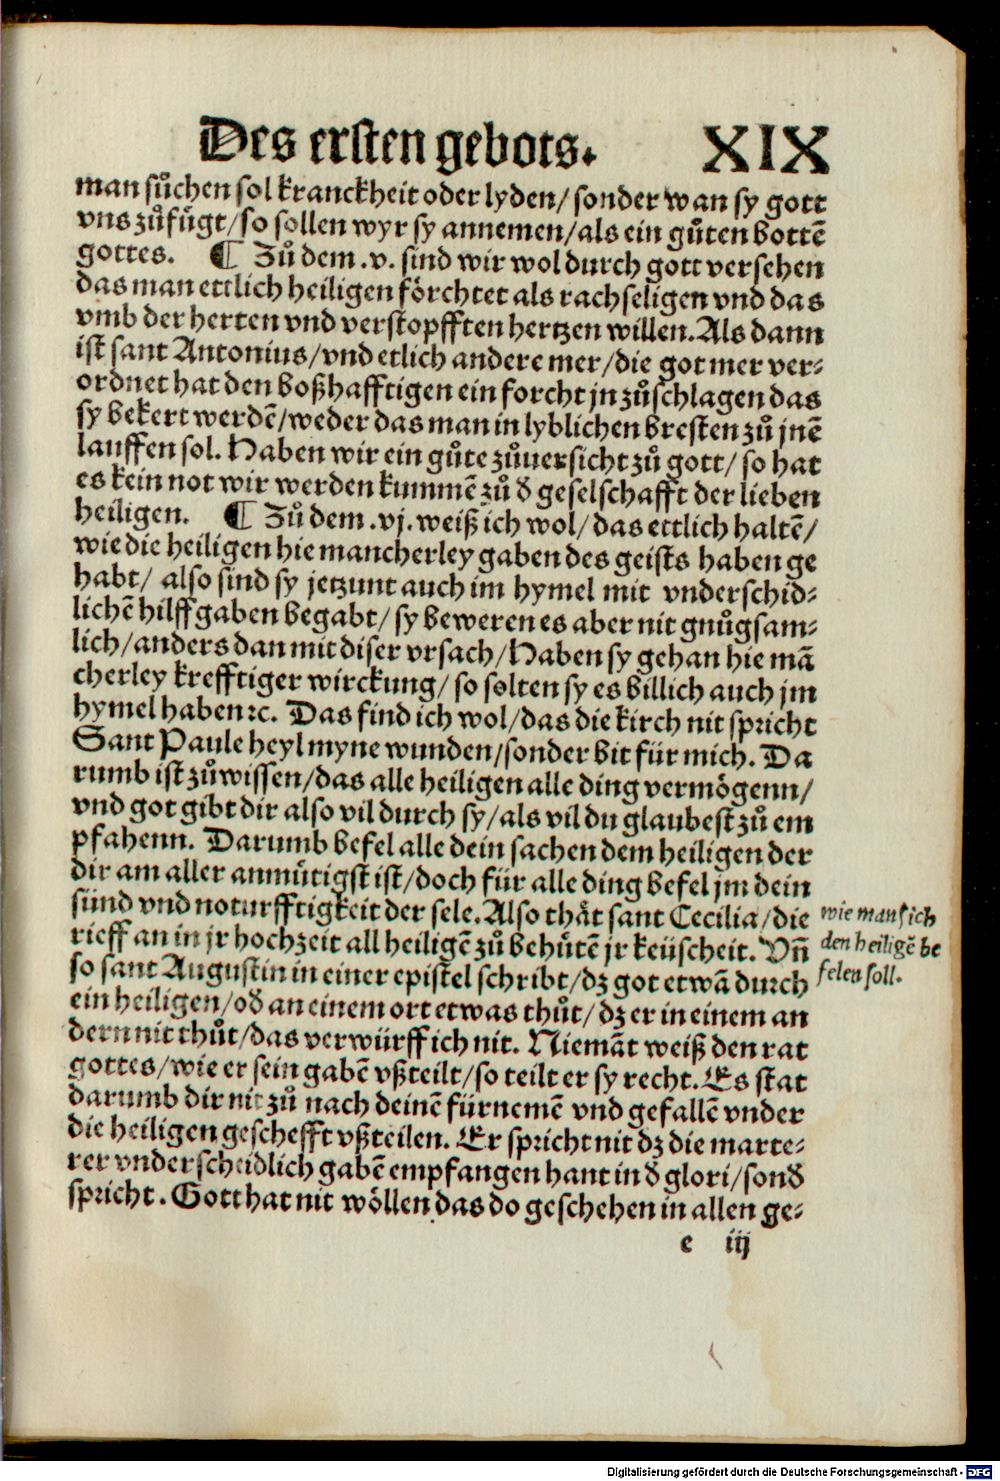 Des ersten gebots. XIX
man sůchen sol kranckheit oder lyden/ sonder wan sy gott
vns zůfůgt/ so sollen wyr sy annemen/ als ein gůten bottē
gottes. ¶ Zů dem .v. sind wir wol durch gott versehen
das man ettlich heiligen förchtet als rachseligen vnd das
vmb der herten vnd verstopfften hertzen willen. Als dann
ist sant Antonius/ vnd etlich andere mer/ die got mer ver⸗
ordnet hat den boßhafftigen ein forcht jn zůschlagen das
sy bekert werdē/ weder das man in lyblichen bresten zů jnē
lauffen sol. Haben wir ein gůte zůuersicht zů gott/ so hat
es kein not wir werden kummē zů d̕ geselschafft der lieben
heiligen. ¶ Zů dem .vj. weiß ich wol/ das ettlich haltē/
wie die heiligen hie mancherley gaben des geists haben ge
habt/ also sind sy jetzunt auch im hymel mit vnderschid⸗
lichē hilff gaben begabt/ sy beweren es aber nit gnůgsam⸗
lich/ anders dan mit diser vrsach/ Haben sy gehan hie mā
cherley krefftiger wirckung/ so solten sy es billich auch jm
hymel haben ⁊c. Das find ich wol/ das die kirch nit spricht
Sant Paule heyl myne wunden/ sonder bit für mich. Da
rumb ist zůwissen/ das alle heiligen alle ding vermögenn/
vnd got gibt dir also vil durch sy/ als vil du glaubest zů em
pfahenn. Darumb befel alle dein sachen dem heiligen der
dir am aller anmůtigst ist/ doch für alle ding befel jm dein
sünd vnd noturfftigkeit der sele. Also thät sant Cecilia/ die
rieff an in jr hochzeit all heiligē zů behůtē jr keüscheit. Vn̄
so sant Augustin in einer epistel schribt/ dz got etwā durch
ein heiligen/ od̕ an einem ort etwas thůt/ dz er in einem an
dern nit thůt/ das verwürff ich nit. Niemāt weiß den rat
gottes/ wie er sein gabē vßteilt/ so teilt er sy recht. Es stat
darumb dir nit zů nach deinē fürnemē vnd gefallē vnder
die heiligen geschefft vßteilen. Er spricht nit dz die marte⸗
rer vnderscheidlich gabē empfangen hant in d̕ glori/ sond̕
spricht. Gott hat nit wöllen das do geschehen in allen ge⸗
e iij
wie man sich
den heiligē be
felen soll.
Digitalisierung gefördert durch die Deutsche Forschungsgemeinschaft - DFG